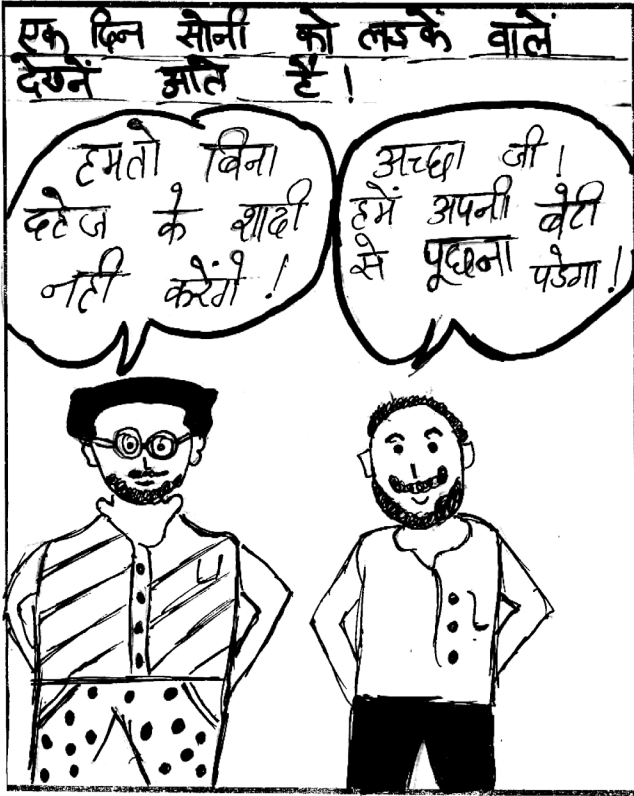 एक दिन सोनी को लडकें वालें
देखनें आते है।
हमतो बिना
दहेज के शादी
नही करेंगे!
अच्छा जी!
हमें अपनी बेटी
से पूछना पडेगा!